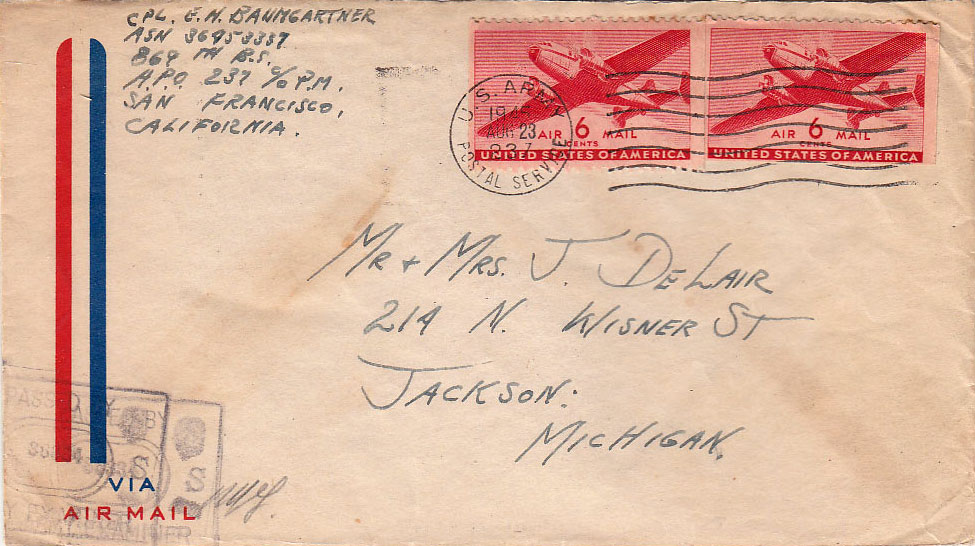 CPL. E. H. BAUMGARTNER
ASN 36453337
869 TH B.S.
A.P.O. 237 c/o P.M.
SAN FRANCISCO,
CALIFORNIA.
U.S. ARMY
AUG 23
237
POSTAL SERVICE
AIR 6 MAIL
CENTS
UNITED STATES OF AMERICA
AIR 6 MAIL
CENTS
UNITED STATES OF AMERICA
MR + MRS. J DELAIR
214 N. WISNER ST
JACKSON:
MICHIGAN.
PASSED BY
BY
S
S
VIA
AIR MAIL